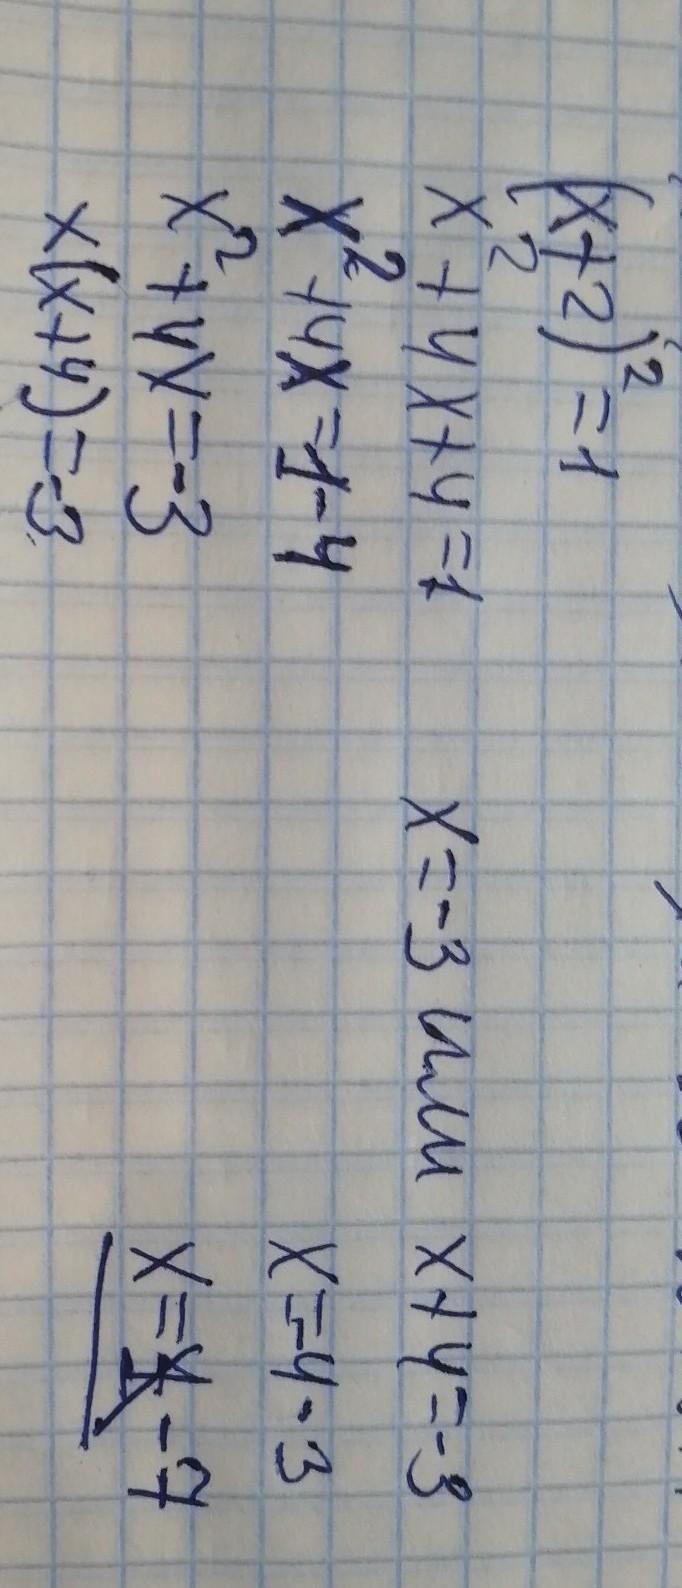 (x+2)²=1
x²+4x+4=1
x²+4x=1-4
x²+4x=-3
x(x+4)=-3
x=-3 или x+4=-3
x=-4-3
x=-7